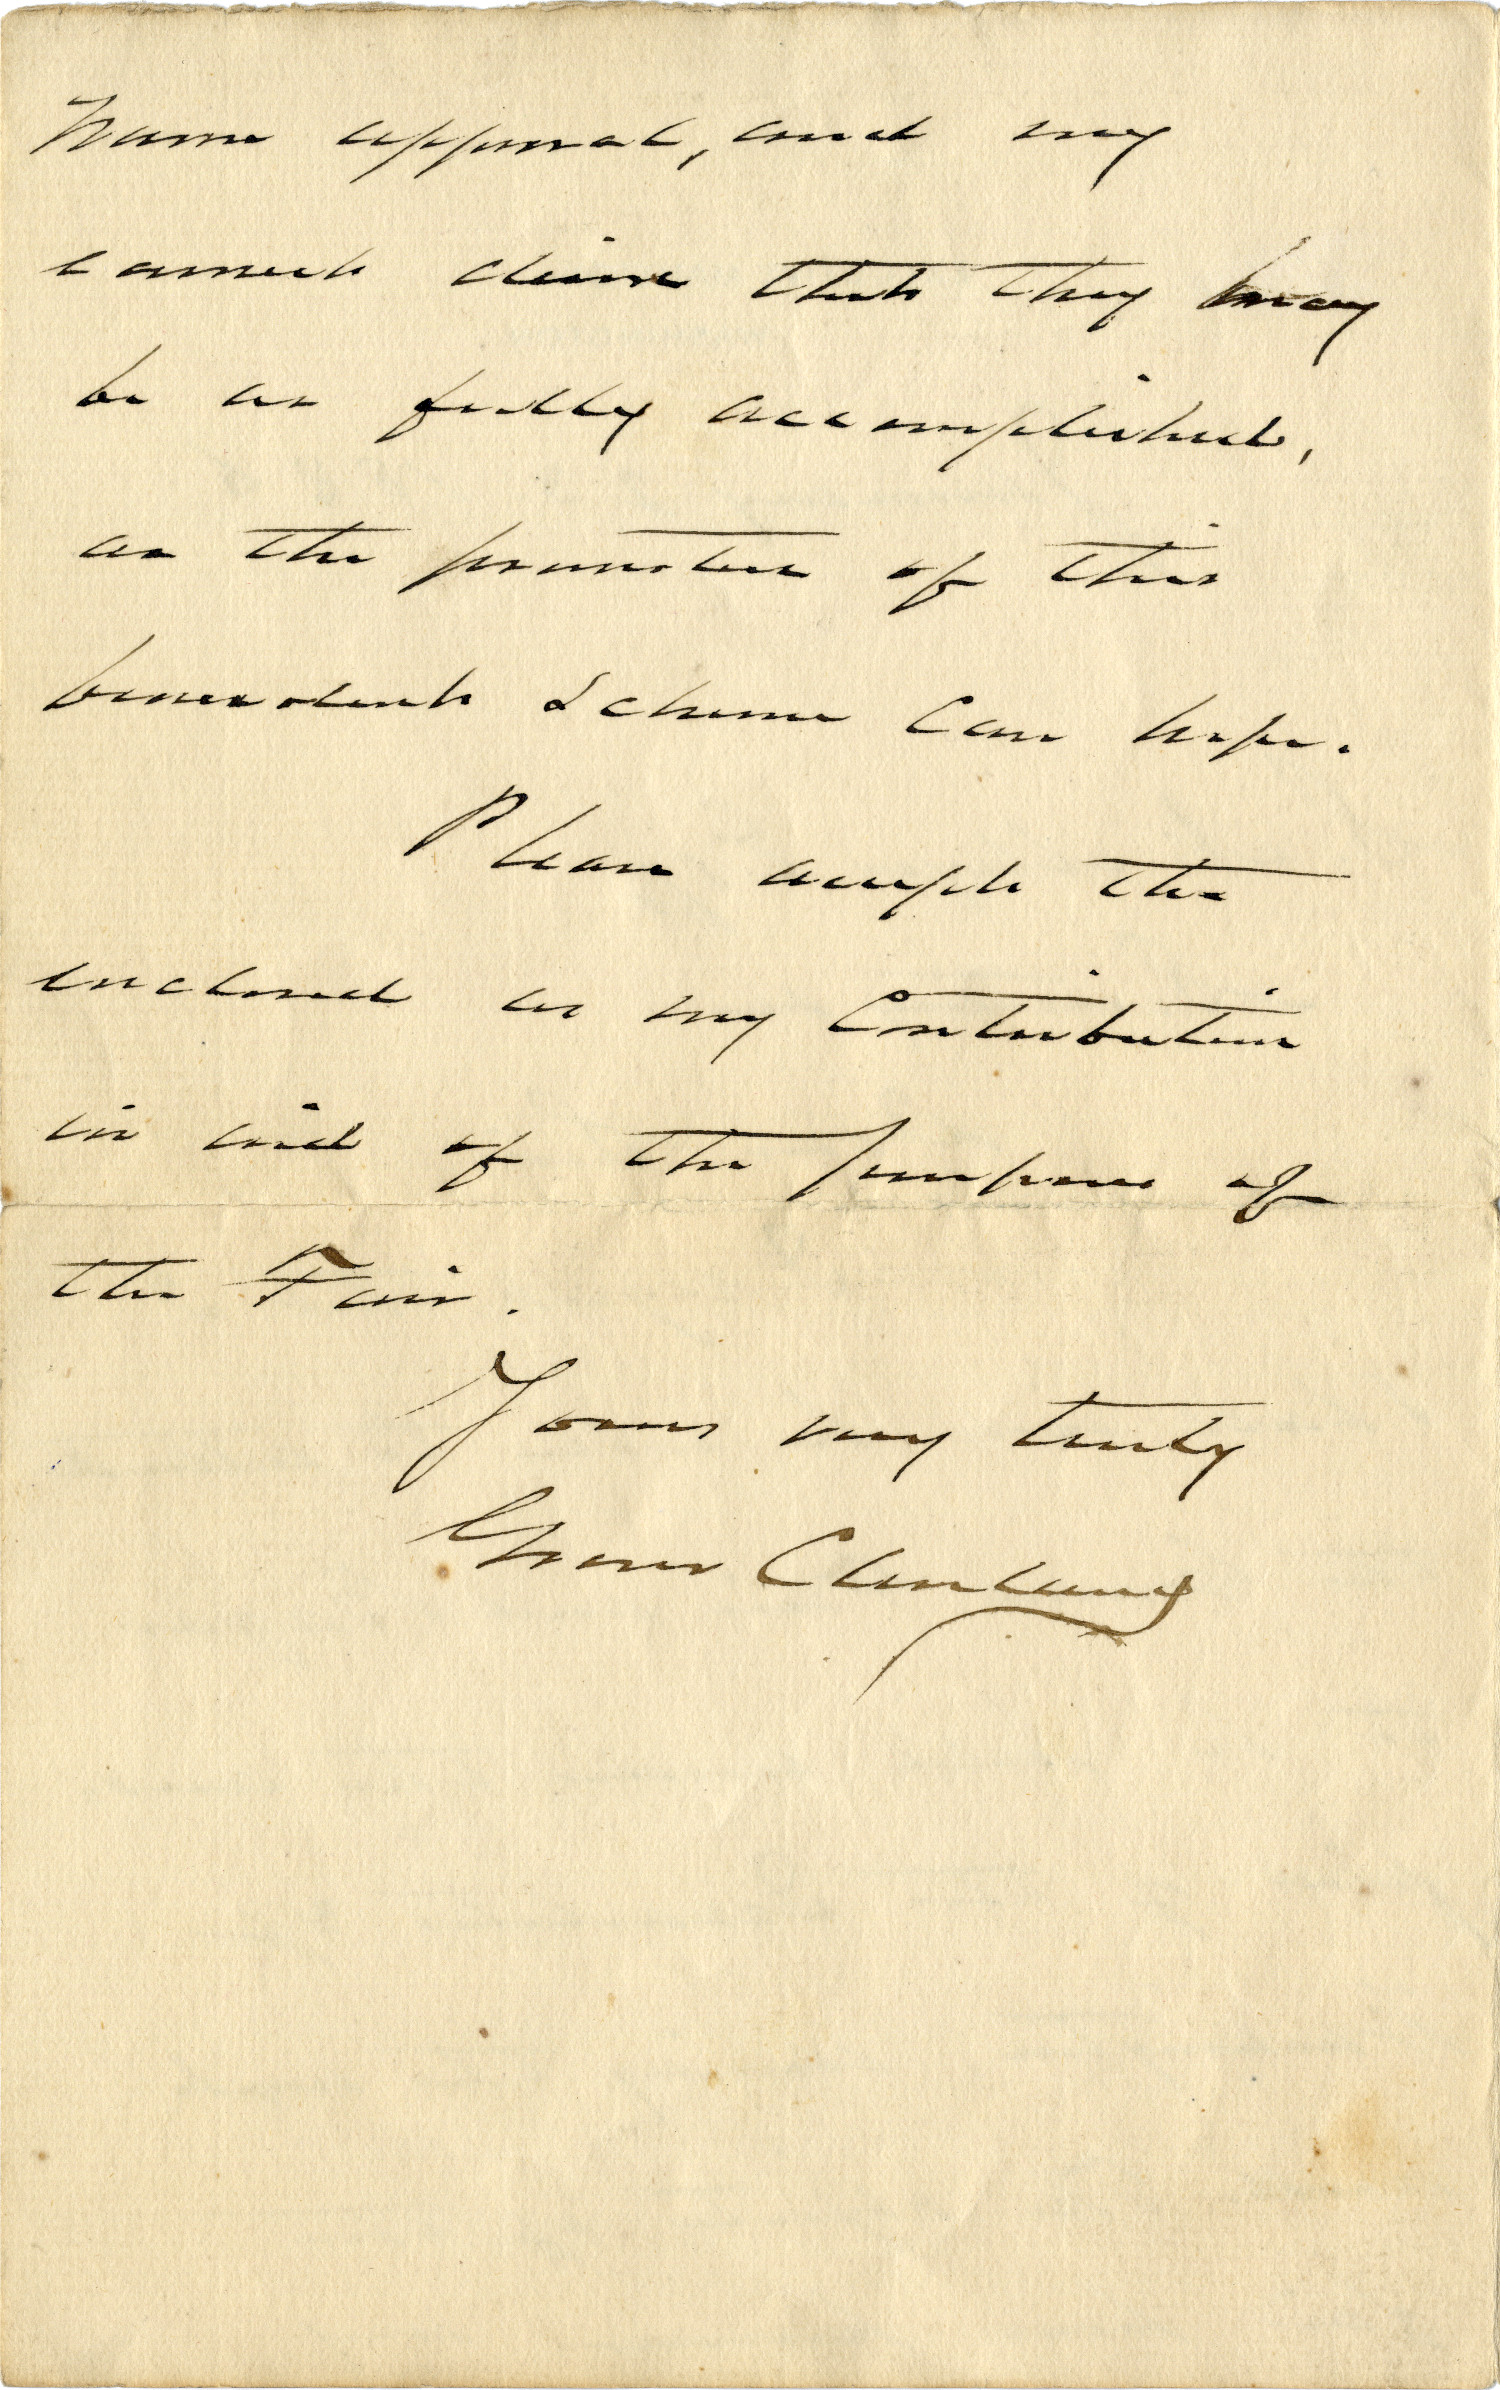 warm approval, and my
earnest desire that they may
be as fully accomplished,
as the promoters of this
benevolent scheme can hope.
Please accept the
enclosed as my Contribution
in aid of the purposes of
the Fair.
Yours very truly
Grover Cleveland